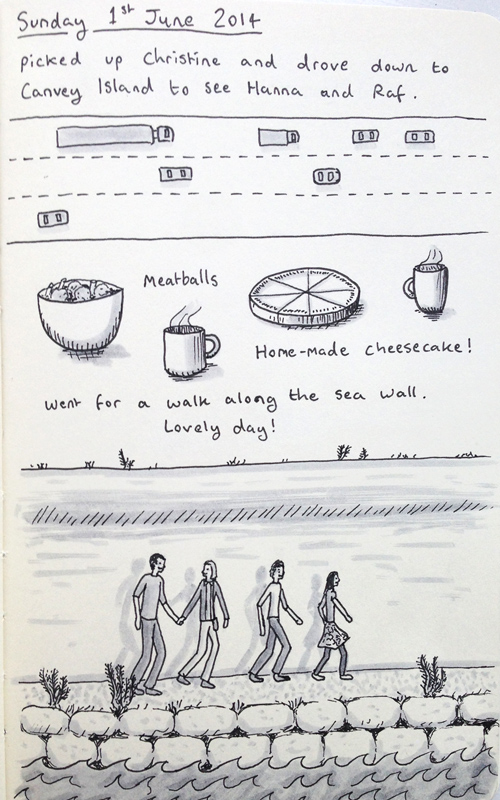 Sunday 1st June 2014
picked up Christine and drove down to
Canvey Island to see Hanna and Raf.
Meatballs
Home-made cheesecake!
went for a walk along the sea wall.
Lovely day!